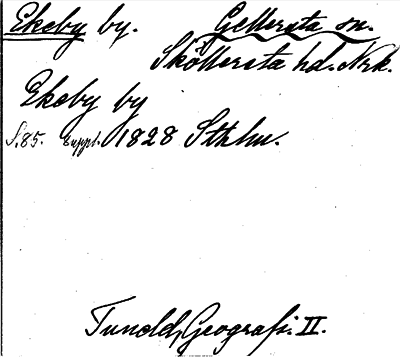 Ekeby by. Gellersta sn.
Sköllersta hd. Nrk.
Ekeby by
S.85. Suppl. 1828 Sthlm.
Tuneld, Geografi. II.